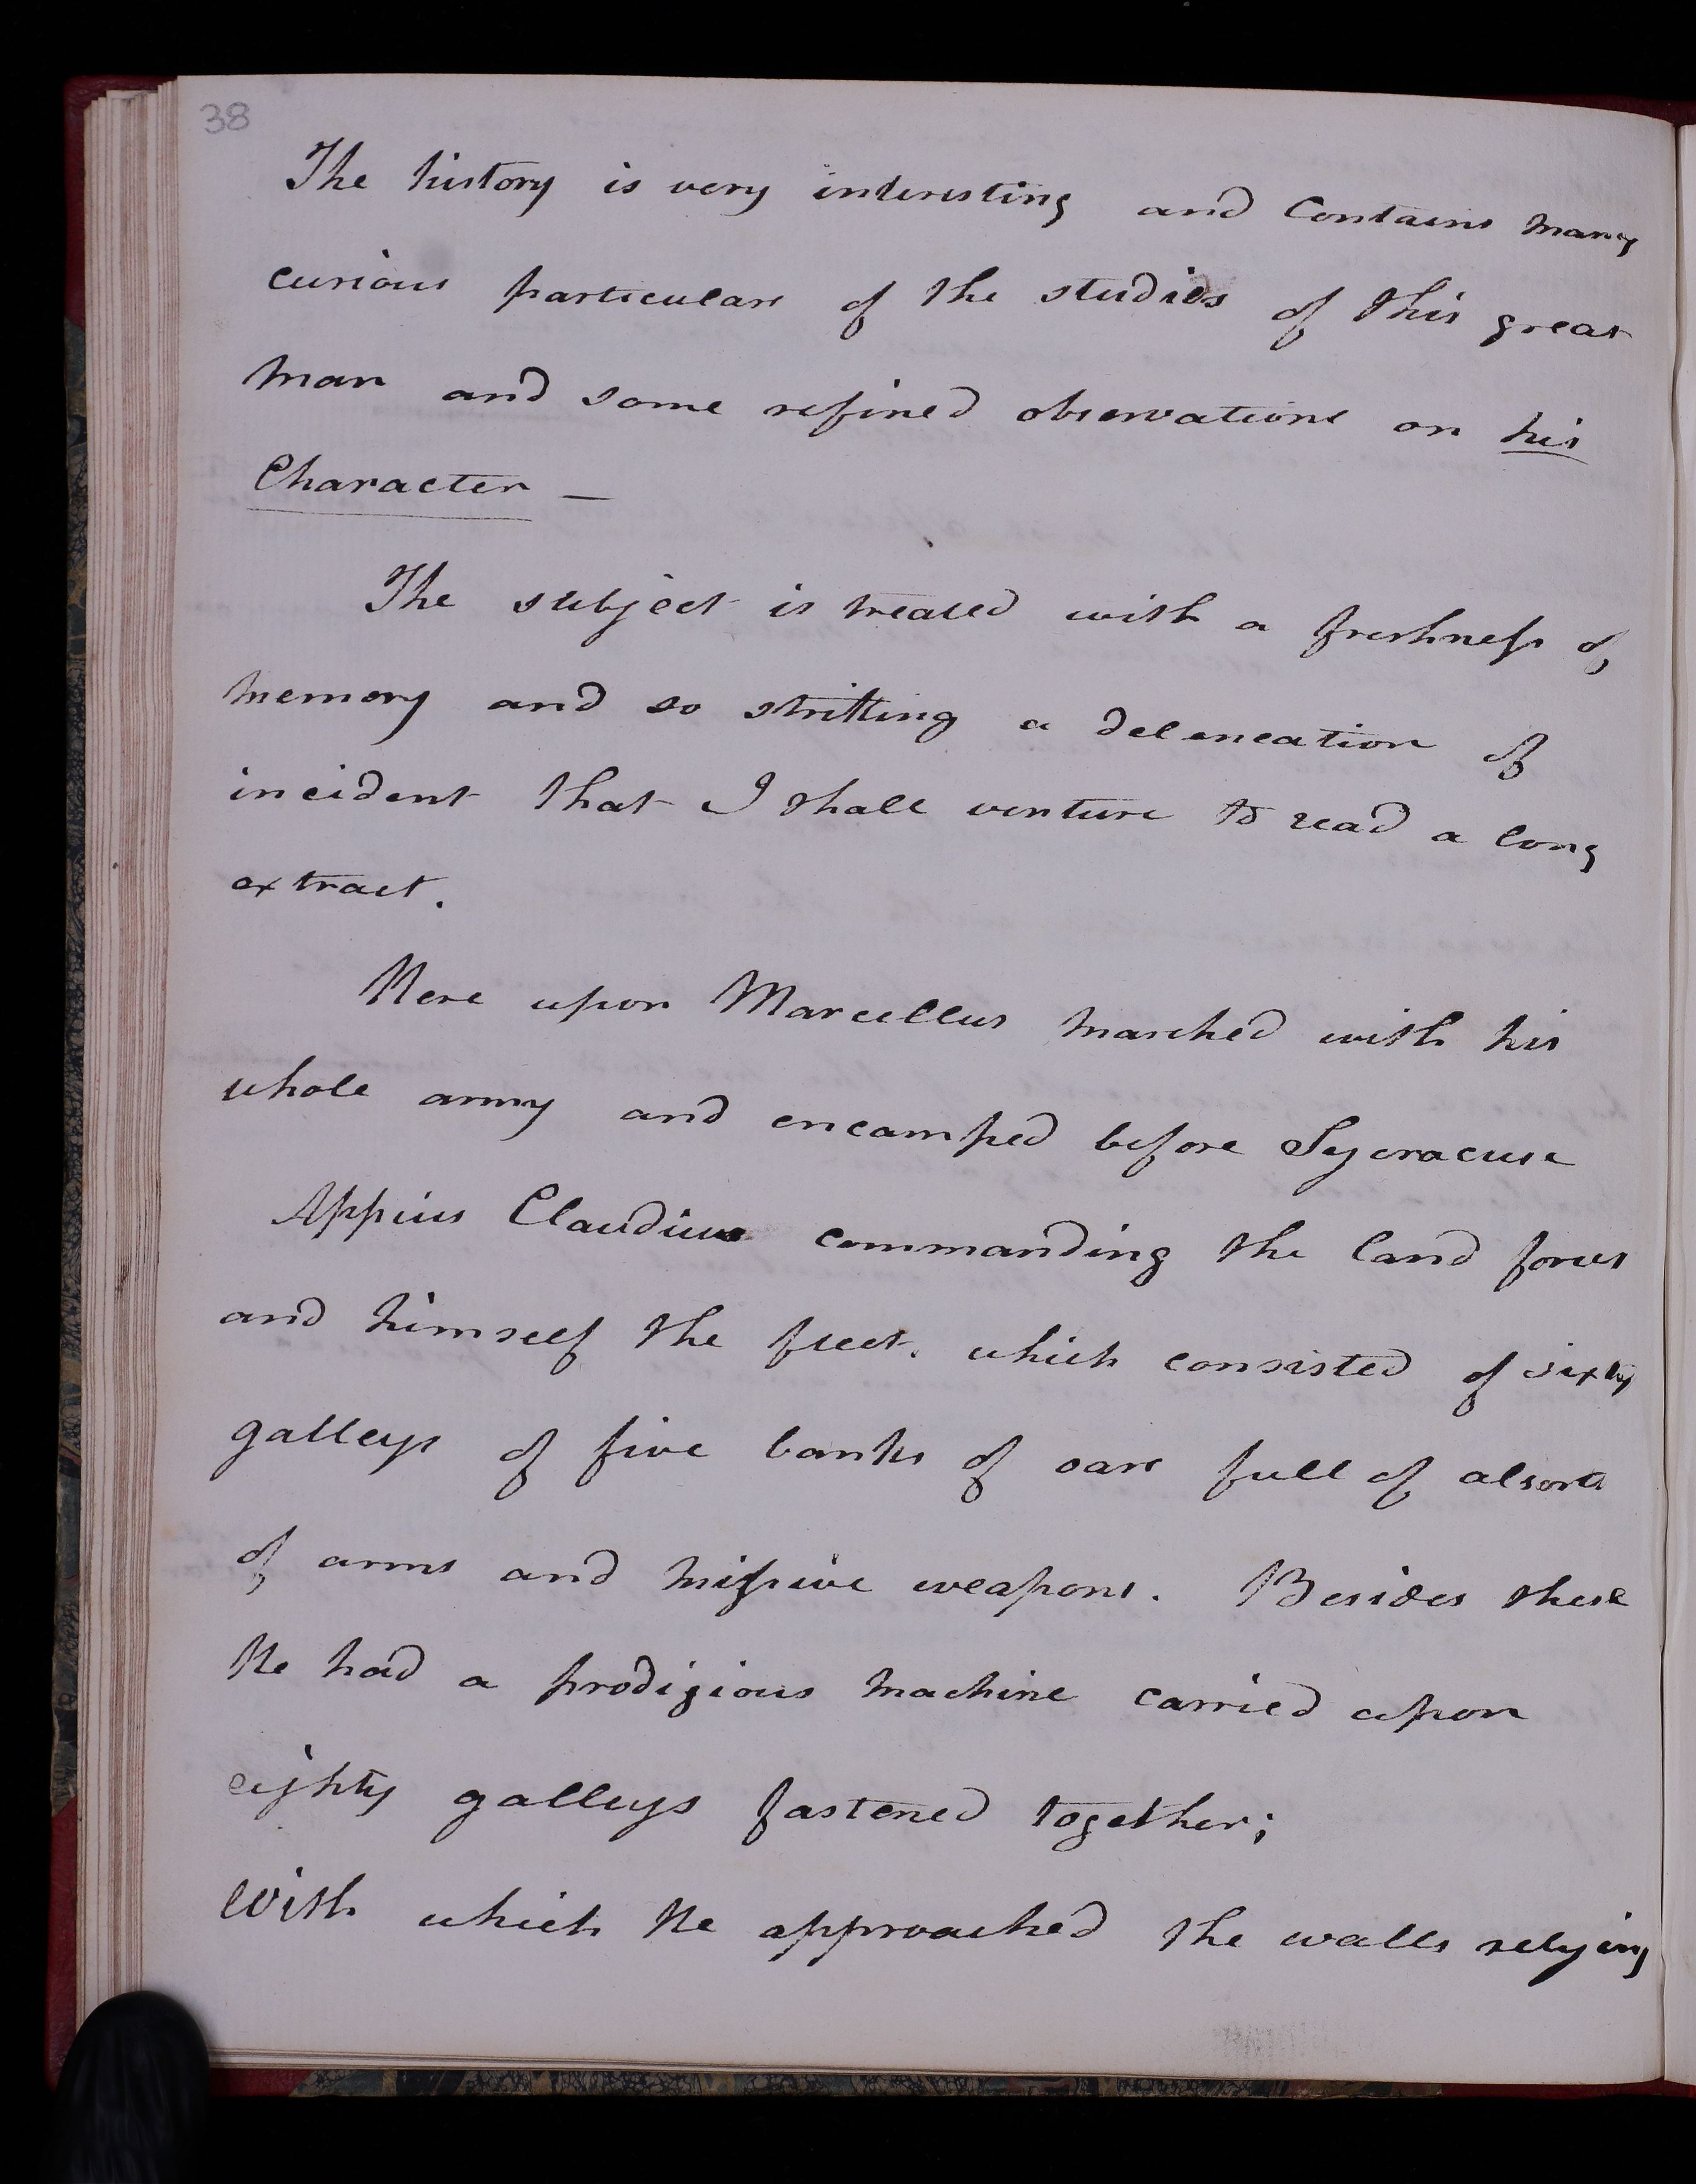 38
The history is very interesting and Contains many
curious particulars of the studies of this great
man and some refined observations on his
Character —
The subject is treated with a freshness of
memory and so stricking a deleneation of
incident that I shall venture to read a long
extract.
Here upon Marcellus marched with his
whole army and encamped before Sycracuse
Appius Claudius commanding the land forces
and himself the fleet. which consisted of sixty
galleys of five banks of oars full of alsorts
of arms and missive weapons. Besides these
He had a prodigious machine carried upon
eighty galleys fastened together;
With which He approached the walls relying